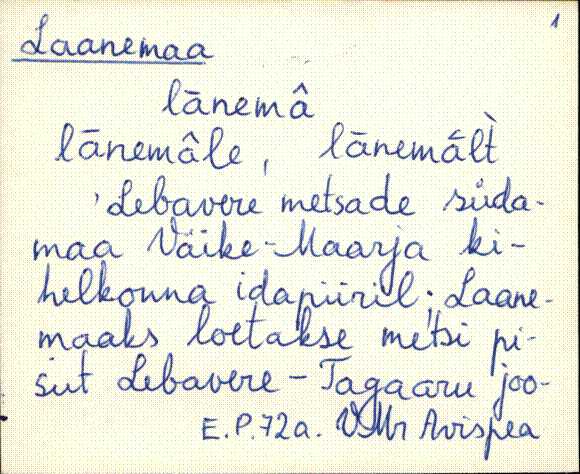 1
Laanemaa
lānemâ
lānemâle, lānemā̂l̀t
'Lebavere metsade süda-
maa Väike-Maarja ki-
helkonna idapiiril; Laane-
maaks loetakse metsi pi-
sut Lebavere-Tagaaru joo-
E.P.72a. VMr Avispea